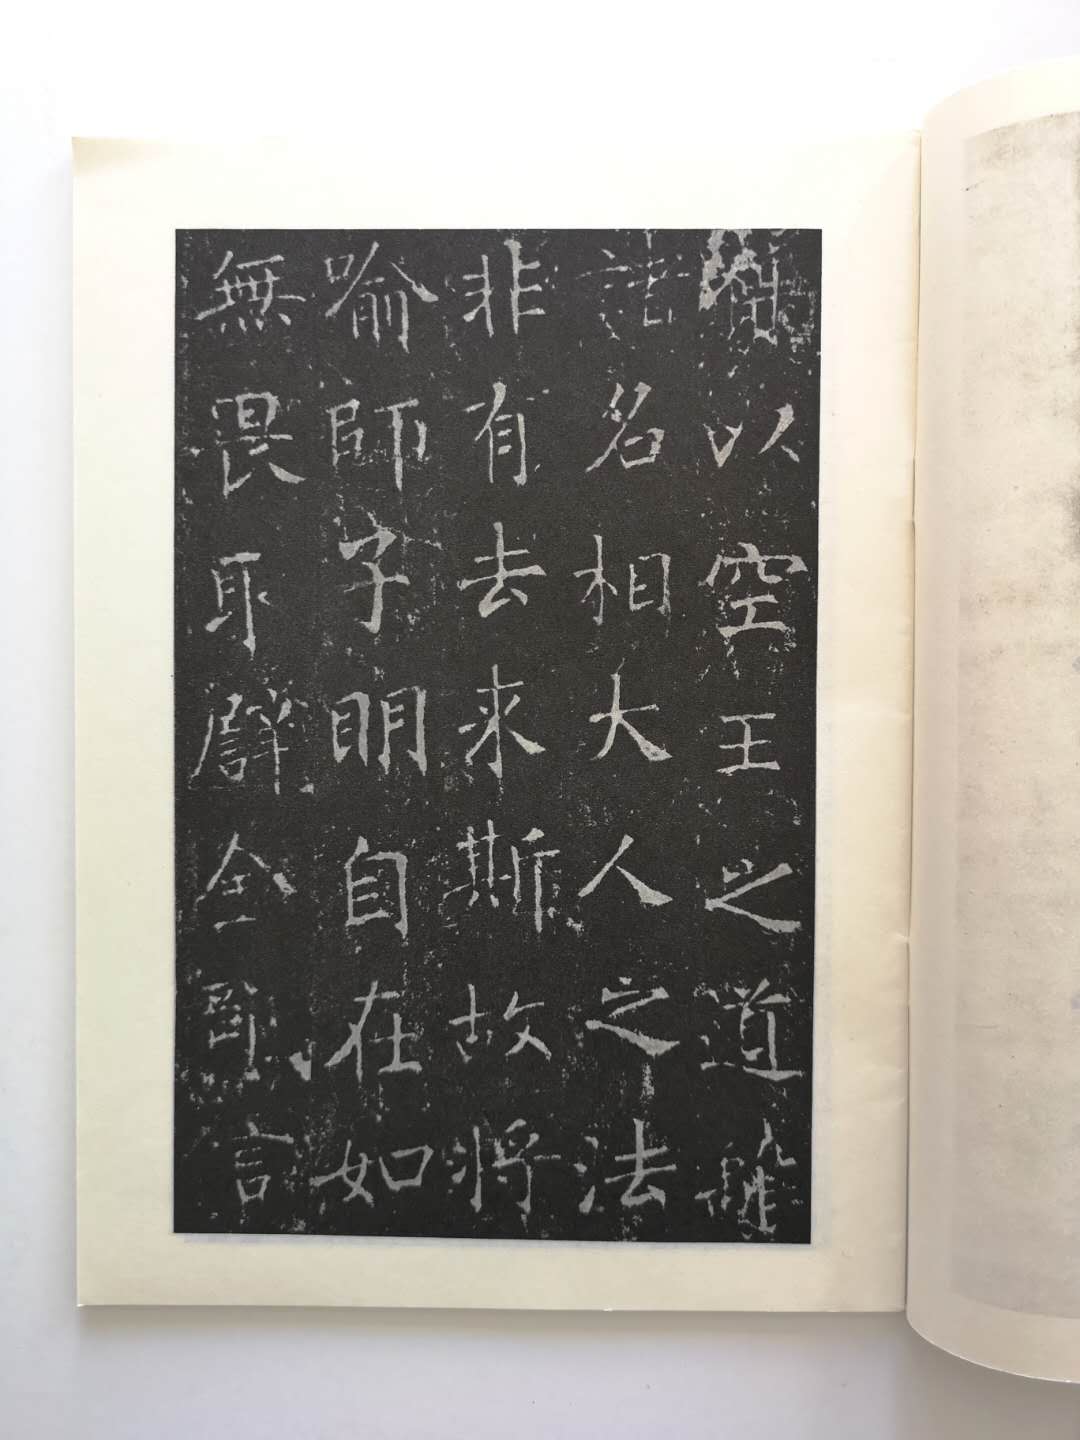 以空王之道離
諸名相大人之法
非有去來斯故將
喻師子明自在如
無畏取譬金剛言